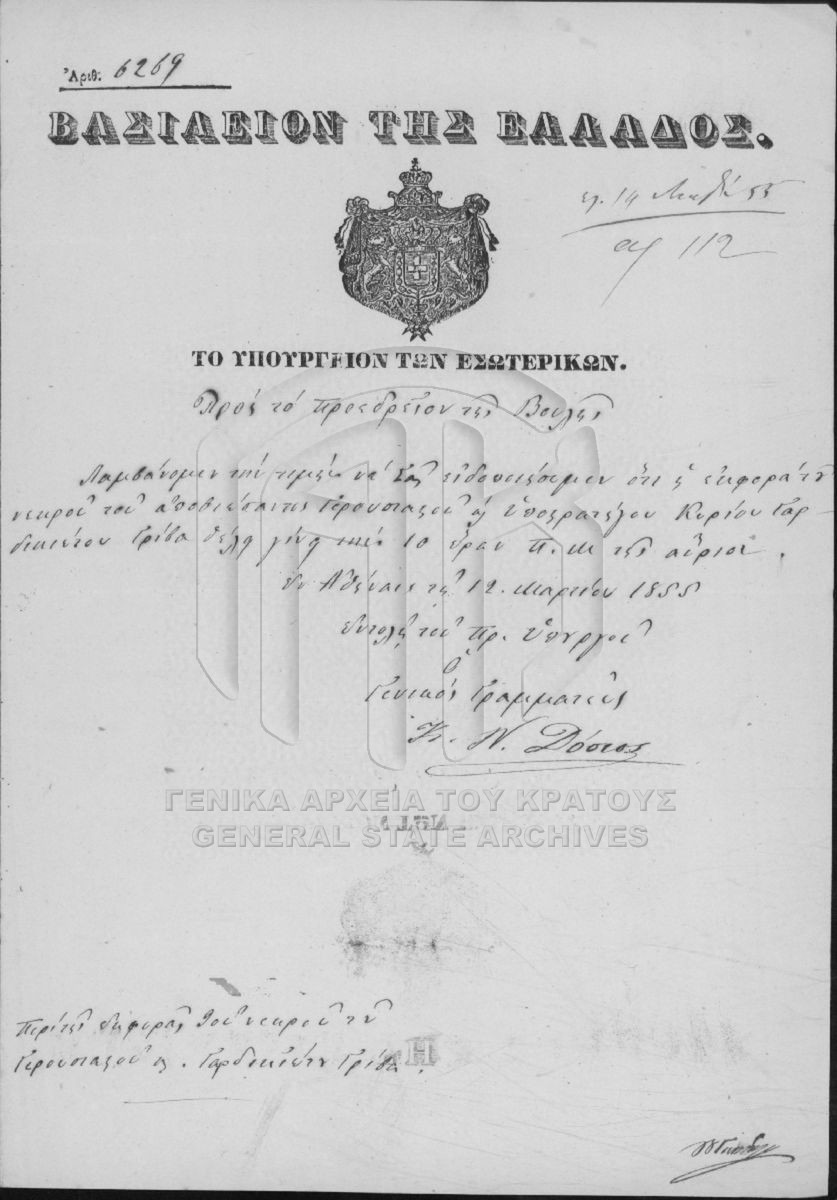 Ἀριθ. 6269
ΒΑΣΙΛΕΙΟΝ ΤΗΣ ΕΛΛΑΔΟΣ.
14 55
112
ΤΟ ΥΠΟΥΡΓΕΙΟΝ ΤΩΝ ΕΣΩΤΕΡΙΚΩΝ.
Πρὸς τὸ Προεδρεῖον τῆς Βουλῆς
Λαμβάνομεν τὴν τιμὴν νὰ Σᾶς εἰδοποιήσωμεν ὅτι ἡ ἐκφορὰ τοῦ
νεκροῦ τοῦ ἀποβιώσαντος Γερουσιαστοῦ Ὑποστρατήγου Κυρίου Γαρ-
δικιώτου Γρίβα θέλει γίνῃ τὴν 10 ὥραν π.μ. τῆς αὔριον.
ἐν Ἀθήναις τῇ 12 Μαρτίου 1855
Ἐντολῇ τοῦ Πρ. Ὑπουργοῦ
Ὁ
Γενικὸς Γραμματεὺς
Κ. Ν. Δόσιος
ΓΕΝΙΚΑ ΑΡΧΕΙΑ ΤΟΥ ΚΡΑΤΟΥΣ
GENERAL STATE ARCHIVES
Περὶ τῆς ἐκφορᾶς τοῦ νεκροῦ τοῦ
Γερουσιαστοῦ κ. Γαρδικιώτου Γρίβα.